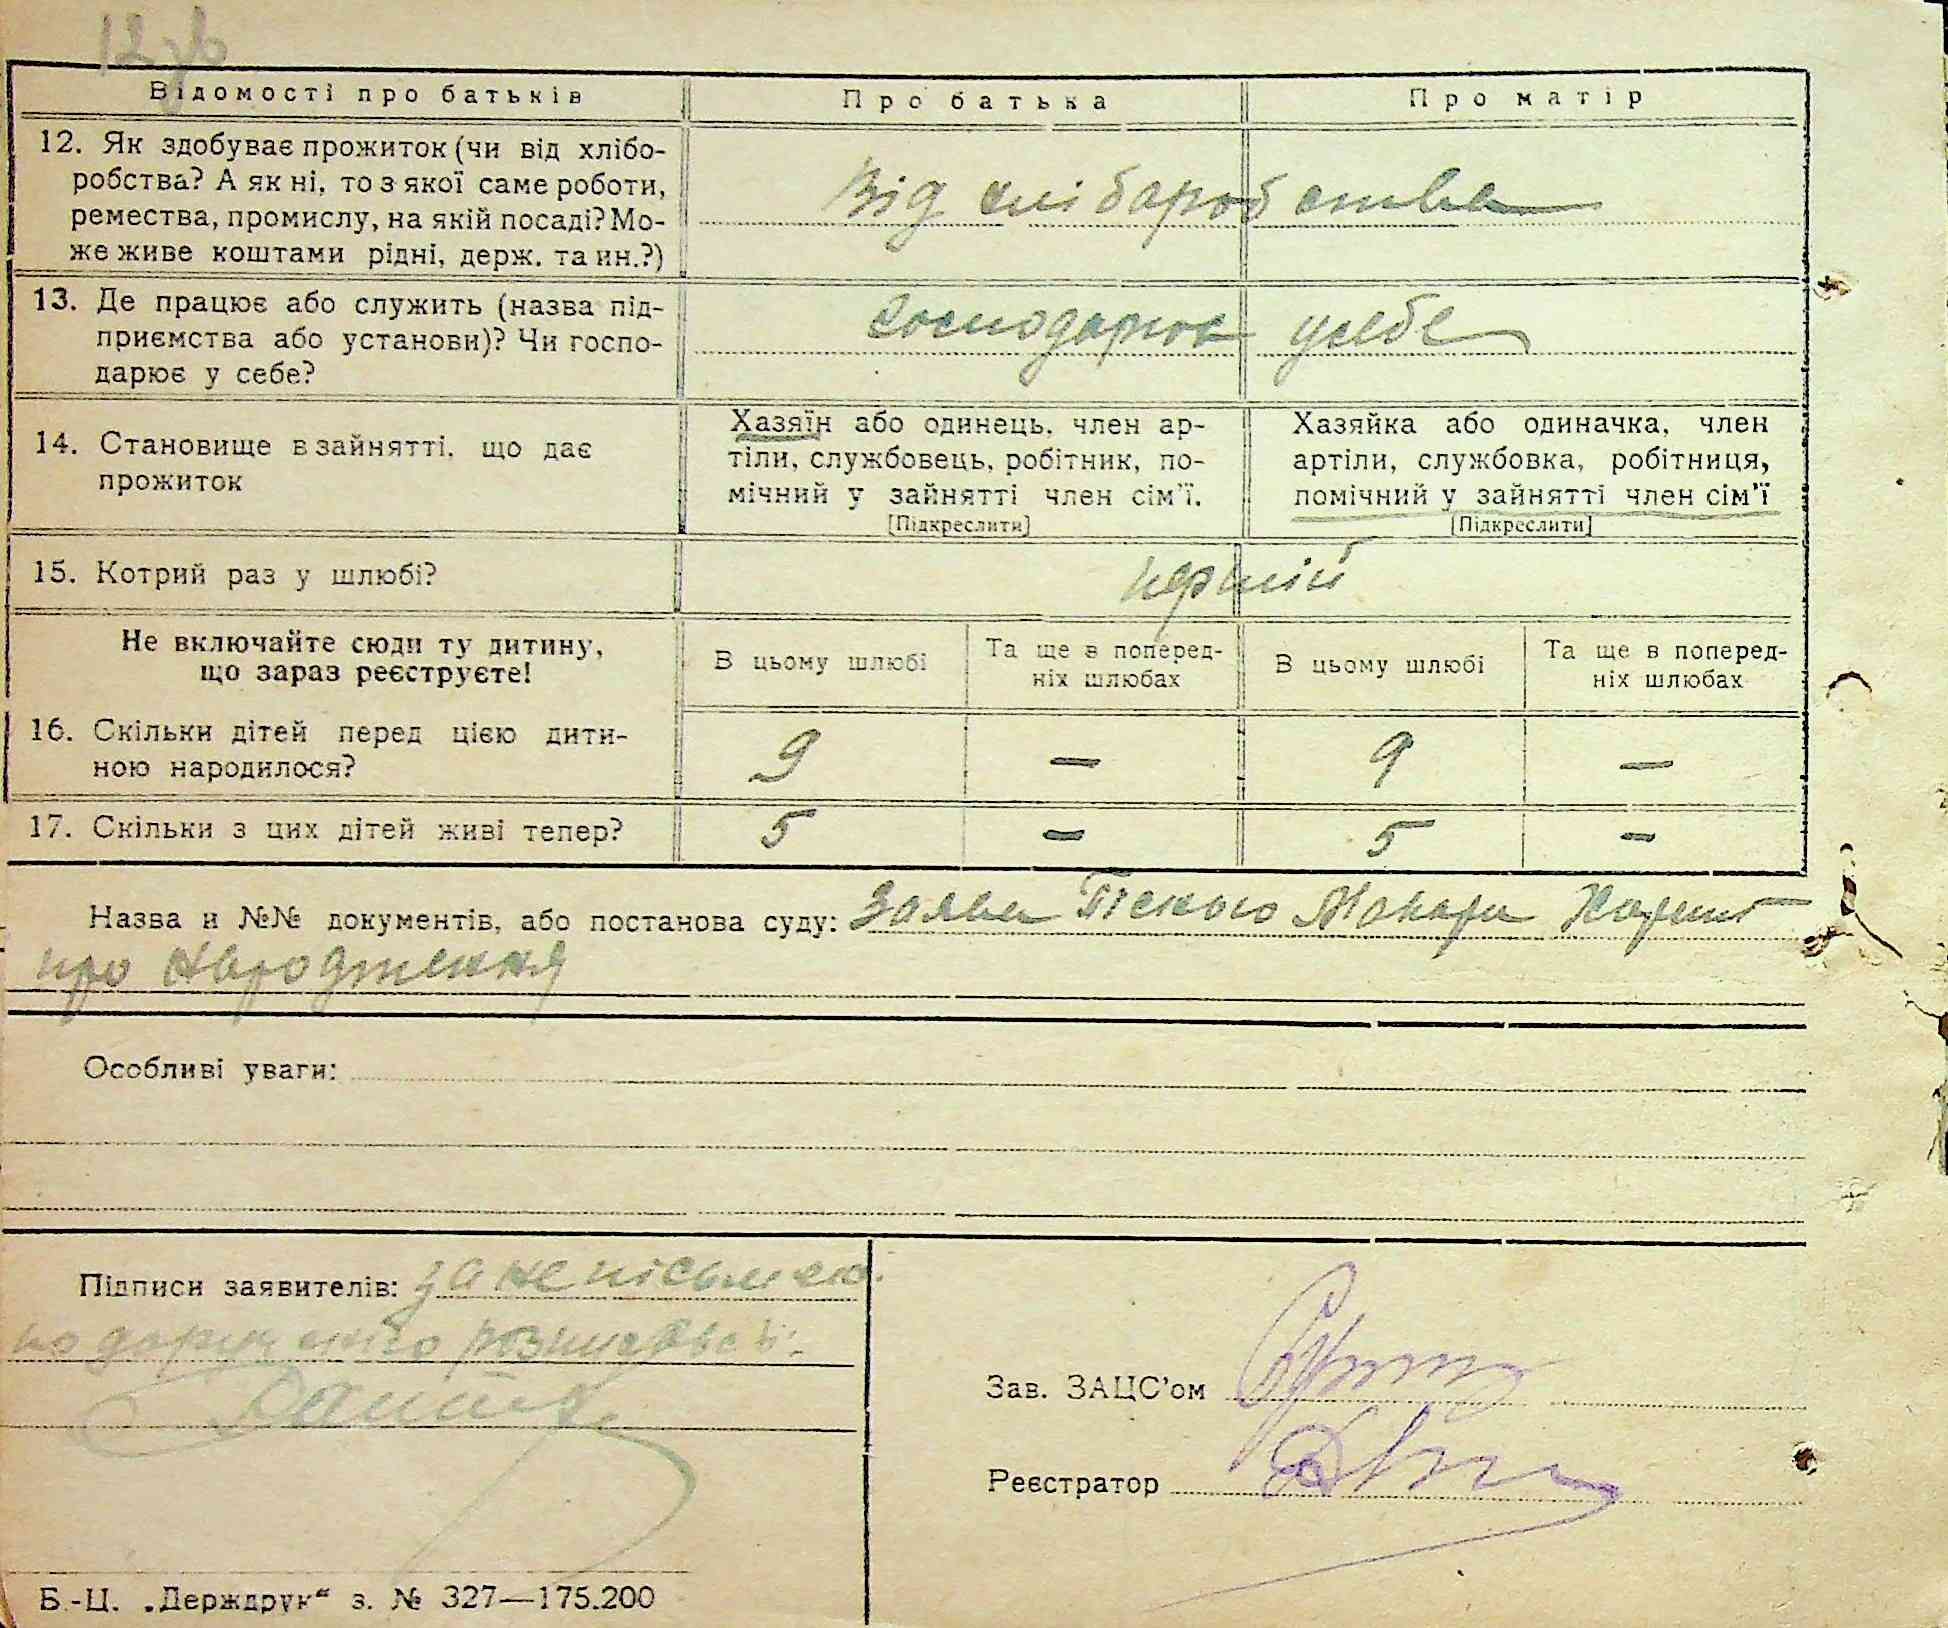 12зв
Відомості про батьків
Про батька
Про матір
12. Як здобуває прожиток (чи від хлібо-
робства? А як ні, то з якої саме роботи,
ремества, промислу, на якій посаді? Мо-
же живе коштами рідні, держ. та ин.?)
Від хлібаробства
13. Де працює або служить (назва під-
приємства або установи)? Чи госпо-
дарює у себе?
усебе
14. Становище в зайнятті, що дає
прожиток
Хазяїн або одинець, член ар-
тіли, службовець, робітник, по-
мічний у зайнятті член сім'ї.
[Підкреслити]
Хазяйка або одиначка, член
артіли, службовка, робітниця,
помічний у зайнятті член сім'ї
[Підкреслити]
15. Котрий раз у шлюбі?
першій
Не включайте сюди ту дитину,
що зараз реєструєте!
В цьому шлюбі
Та ще в поперед-
ніх шлюбах
В цьому шлюбі
Та ще в поперед-
ніх шлюбах
16. Скільки дітей перед цією дити-
ною народилося?
9 — 9 —
17. Скільки з цих дітей живі тепер?
5 — 5 —
Назва и №№ документів, або постанова суду: Заява
про народження
Особливі уваги:
Підписи заявителів:
Зав. ЗАЦС'ом
Реєстратор
Б.-Ц. „Держдрук“ з. № 327—175.200